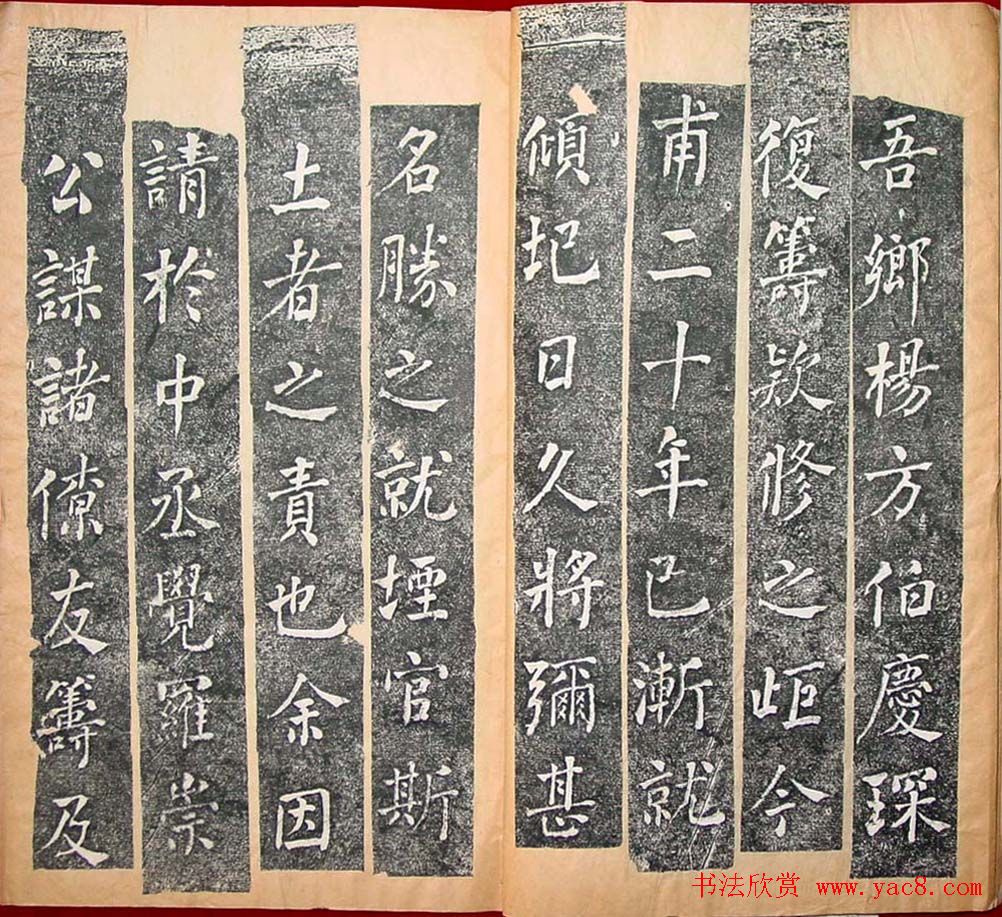 吾鄉楊方伯慶琛
復籌欵修之岠今
甫二十年已漸就
傾圮日久將彌甚
名勝之就堙官斯
土者之責也余因
請於中丞覺羅崇
公謀諸僚友籌及
书法欣赏 www.yac8.com